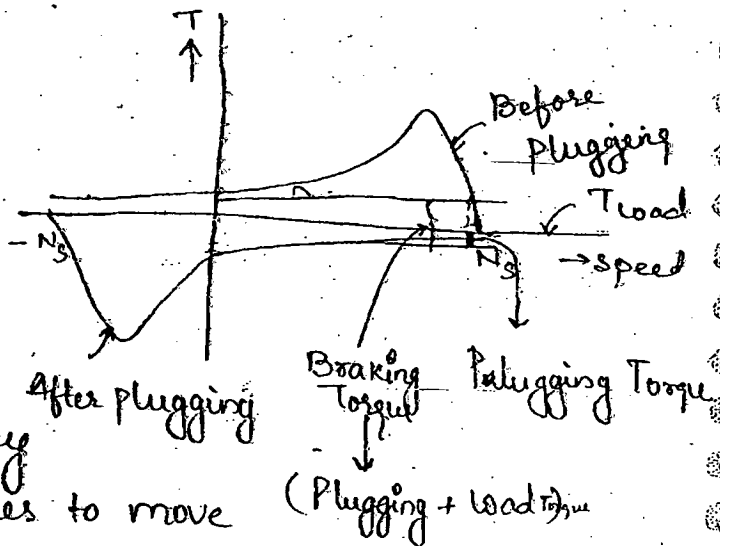 T
Before
plugging
Tload
- Ns
Ns
→ speed
After plugging
Braking
Torque
Plugging Torque
es to move
(Plugging + load Torque)